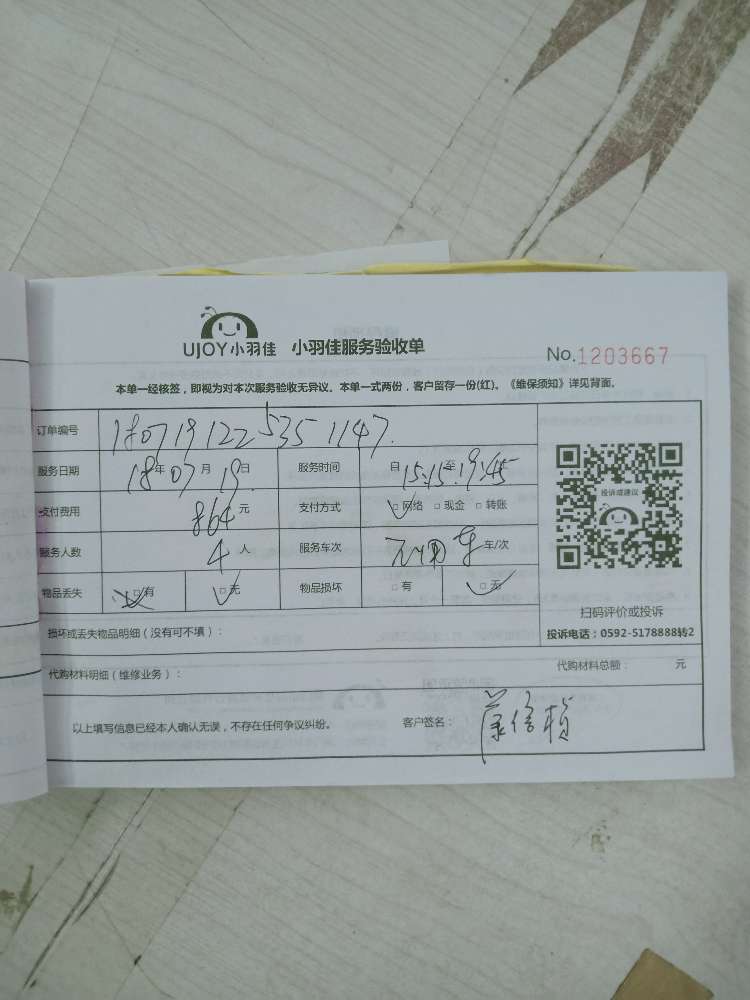 UJOY小羽佳 小羽佳服务验收单 No.1203667
本单一经核签，即视为对本次服务验收无异议。本单一式两份，客户留存一份(红)。《维保须知》详见背面。
订单编号 180719122 5351147.
服务日期 18年07月19日 服务时间 自15:15至19:45
支付费用 864元 支付方式 □网络 □现金 □转账
服务人数 4人 服务车次 车/次
物品丢失 □有 □无 物品损坏 □有 □无
投诉或建议
扫码评价或投诉
投诉电话：0592-5178888转2
损坏或丢失物品明细（没有可不填）：
代购材料明细（维修业务）： 代购材料总额： 元
以上填写信息已经本人确认无误，不存在任何争议纠纷。 客户签名：